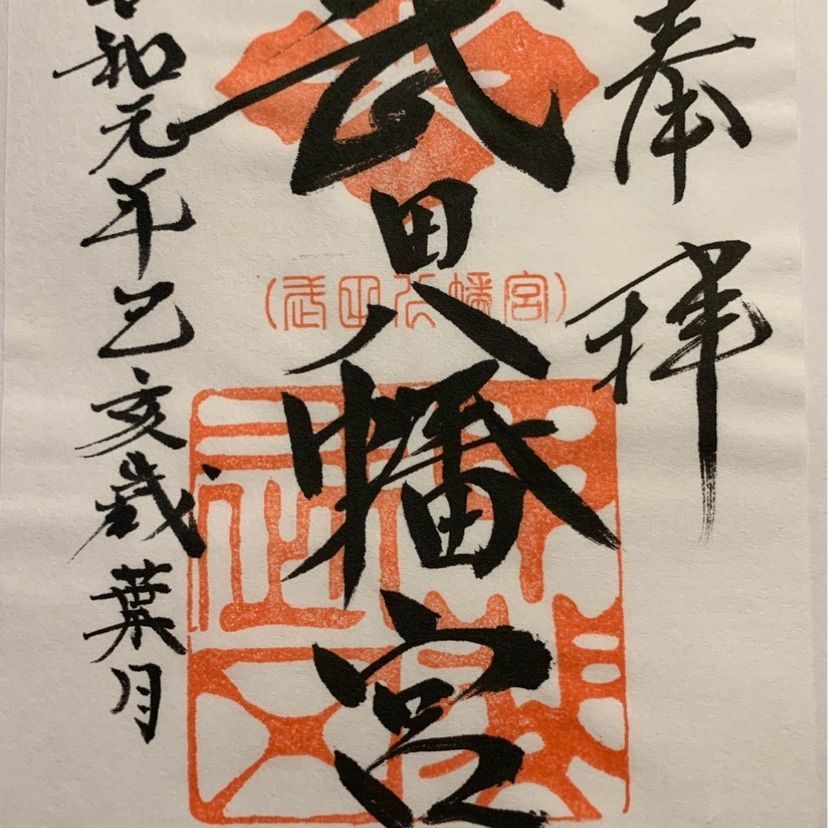 奉拝
武田八幡宮
(武田八幡宮)
令和元年己亥歳葉月